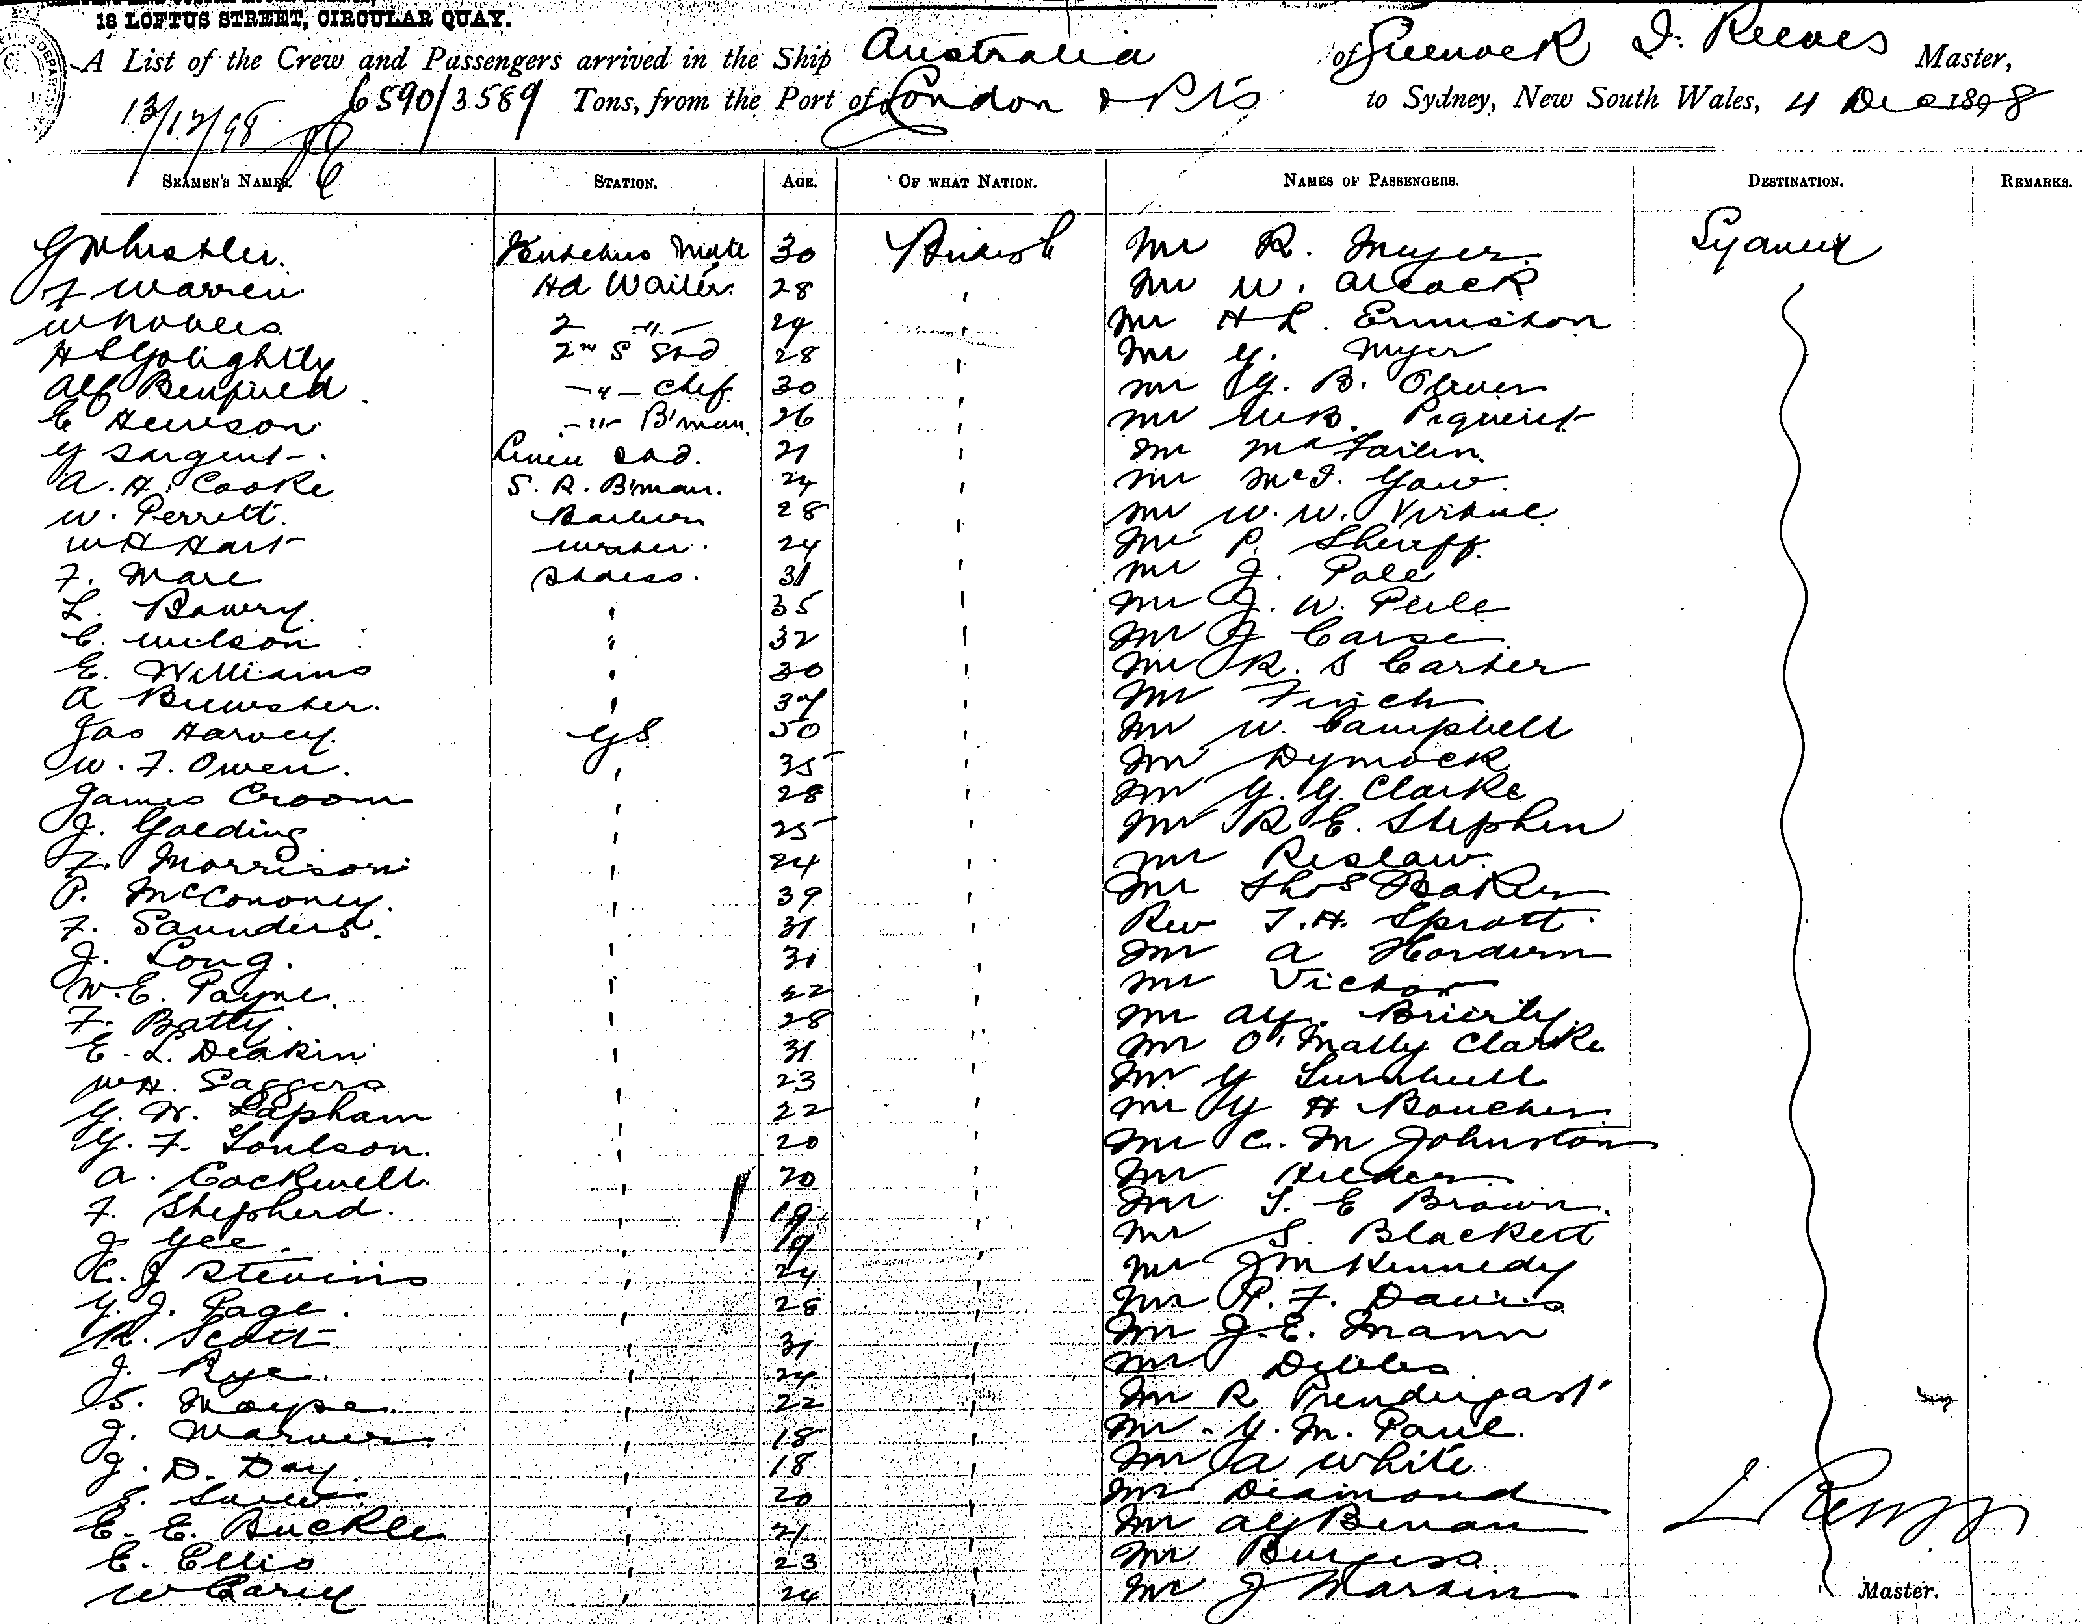 18 LOFTUS STREET, CIRCULAR QUAY.
A List of the Crew and Passengers arrived in the Ship Australia of Greenock I. Reeves Master,
13/12/98 6590/3589 Tons, from the Port of London & Pts to Sydney, New South Wales, 4 Dec 1898
SEAMEN'S NAMES. STATION. AGE. OF WHAT NATION. NAMES OF PASSENGERS. DESTINATION. REMARKS.
G Whistler. Butchers Mate 30 British Mr R. Meyer Sydney
F Warren Hd Waiter 28 ' Mr W. Alcock
2 -"- 29 ' Mr H L. Ermiston
H S Golightly 2nd S Std 28 ' Mr G. Myer
Alf Benfield -"- Chef 30 ' Mr G. B. Oliver
E Hewson -"- B'man 26 ' Mr W.B. Piguenit
G Sargent Linen Std. 21 ' Mr
A. H. Cooke S. R. B'man. 24 ' Mr
W. Perrett. Barber 28 ' Mr W. W. Virtue
W H Hart Writer. 24 ' Mr P. Sheriff
F. Mare Stdess. 31 ' Mr J. Pole
L. Bowry ' 35 ' Mr J. W. Peile
C. Wilson ' 32 ' Mr J Carse
E. Williams ' 30 ' Mr R. S Carter
A Brewster. ' 37 ' Mr Finch
Jas Harvey GS 50 ' Mr W. Campbell
W. F. Owen. ' 35 ' Mr Dymock
James Croom ' 28 ' Mr G. G. Clarke
J. Golding ' 25 ' Mr R E. Stephen
F. Morrison ' 24 ' Mr Reslaw
P. McCononey. ' 39 ' Mr Thos Baker
F. Saunders. ' 31 ' Rev T. H. Sprott
J. Long. ' 31 ' Mr A Hordern
W. E. Payne. ' 22 ' Mr Victor
F. Batty. ' 28 ' Mr Brierly
E. L. Deakin ' 31 ' Mr O'Mally Clarke
W H. Saggers ' 23 ' Mr G Turnbull
G. W. Lapham ' 22 ' Mr G H Boucher
G. F. Toulson. ' 20 ' Mr C. M Johnston
A. Cockwell. ' 20 ' Mr Hilder
F. Shepherd. ' 19 ' Mr T. E Brown.
J Gee. ' 19 ' Mr S. Blackett
R. J Stevens ' 24 ' Mr J M Kennedy
G. J. Page. ' 28 ' Mr P. F. Davis
R. Scott ' 31 ' Mr J. E. Mann
J. Rye. ' 24 ' Mr Dibbs
S. ' 22 ' Mr R Prendergast
J. Warner ' 18 ' Mr. G. M. Paul.
J. D. Day. ' 18 ' Mr A White
' 20 ' Mr Diamond
E. E. Buckle ' 21 ' Mr A G Benan
E. Ellis ' 23 ' Mr Burgess
W Carey ' 24 ' Mr J Martin Master.